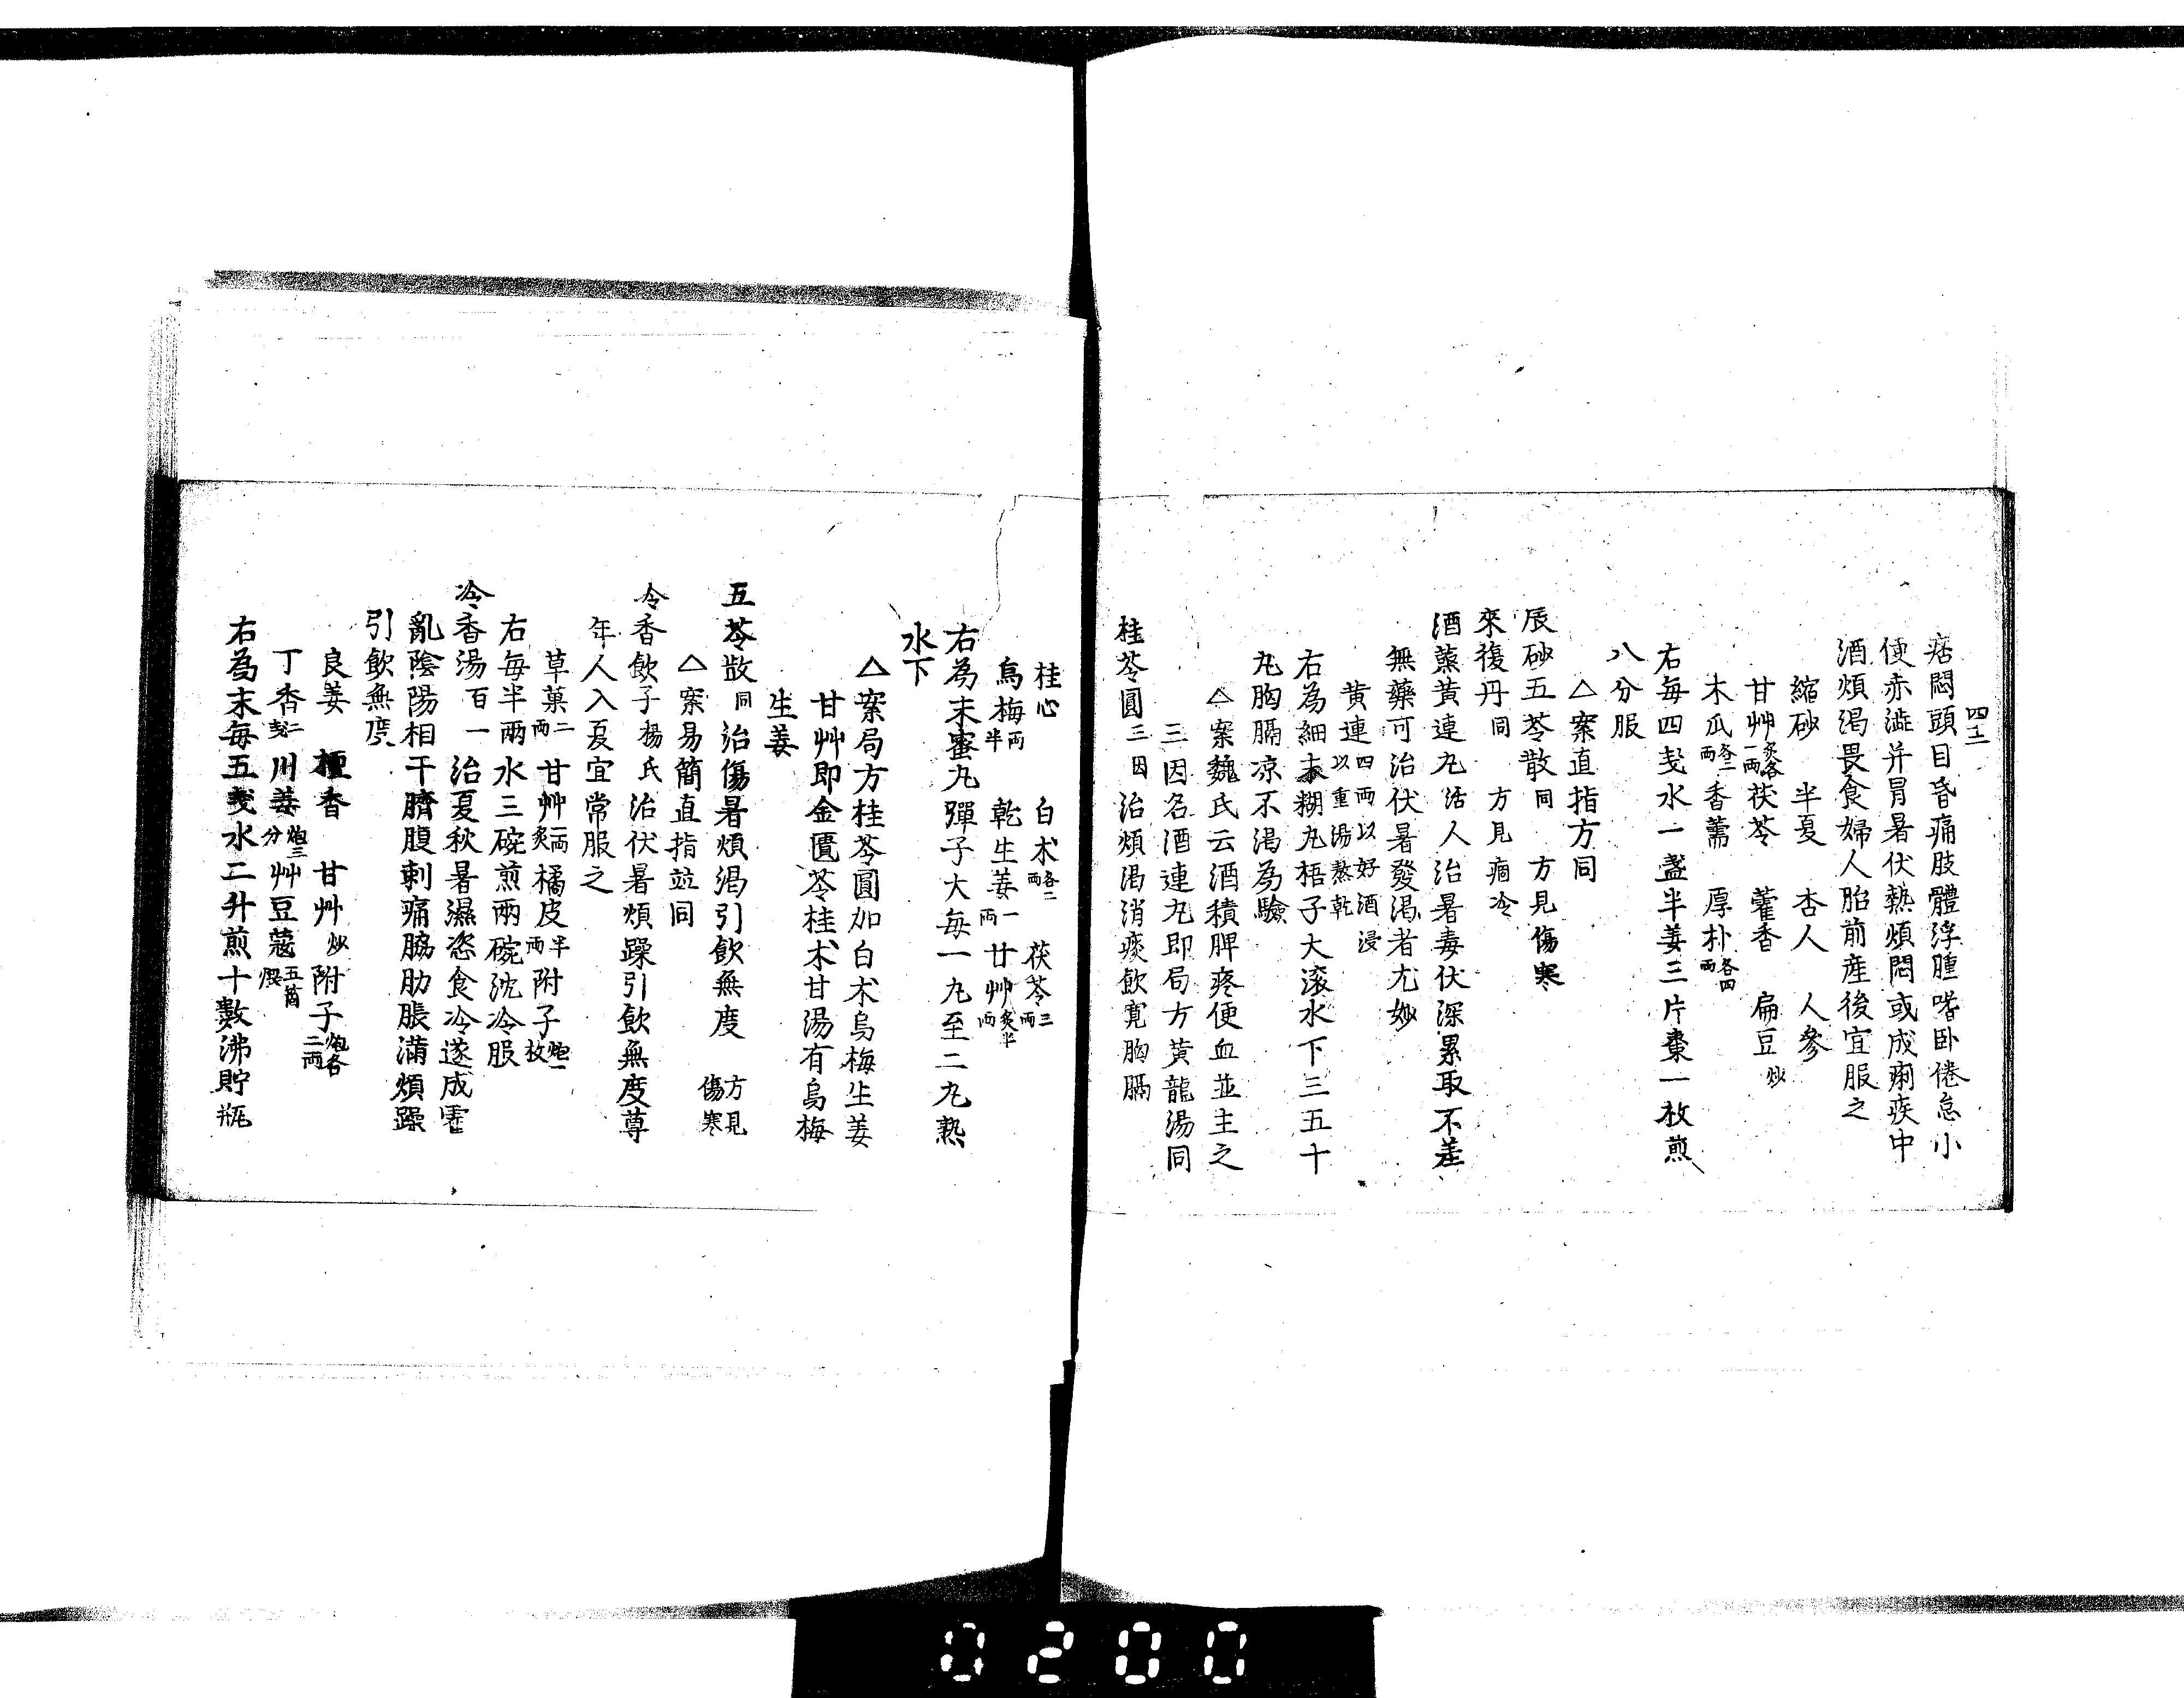 四十二
痞悶頭目昏痛肢體浮腫嗜卧倦怠小
使赤澁并胃暑伏熱煩悶或成痢疾中
酒煩渇畏食婦人胎前産後宜服之
縮砂 半夏 杏人 人參
甘艸炙各一兩茯苓 藿香 扁豆炒
木瓜各二兩香薷 厚朴各四兩
右毎四戔水一盞半姜三片棗一枚煎
八分服
△案直指方同
辰砂五苓散同 方見傷寒
來復丹同 方見痼冷
酒蒸黄連丸活人治暑毒伏深累取不差
無藥可治伏暑發渇者尤妙
黄連四兩以好酒浸以重湯熬乾
右為細末糊丸梧子大滚水下三五十
丸胸膈凉不渇為驗
△案魏氏云酒積脾疼便血並主之
三因名酒連丸即局方黄龍湯同
桂苓圓三因治煩渇消痰飲寛胸膈
桂心 白朮各二兩 茯苓三兩
烏梅兩半 乾生姜一兩甘艸炙半兩
右為末蜜丸彈子大毎一丸至二丸熟
水下
△案局方桂苓圓加白朮烏梅生姜
甘艸即金匱苓桂朮甘湯有烏梅
生姜
五苓散同治傷暑煩渇引飲無度 方見傷寒
△案易簡直指竝同
冷香飲子楊氏治伏暑煩躁引飲無度尊
年人入夏宜常服之
草菓二兩甘艸一兩炙橘皮半兩附子炮一枚
右毎半兩水三碗煎兩碗沈冷服
冷香湯百一治夏秋暑濕恣食冷遂成霍
亂陰陽相干臍腹刺痛脇肋脹滿煩躁
引飲無度
良姜 檀香 甘艸炒附子炮各二兩
丁香二戔川姜炮三分艸豆蔻五箇煨
右為末毎五戔水二升煎十數沸貯瓶
0200